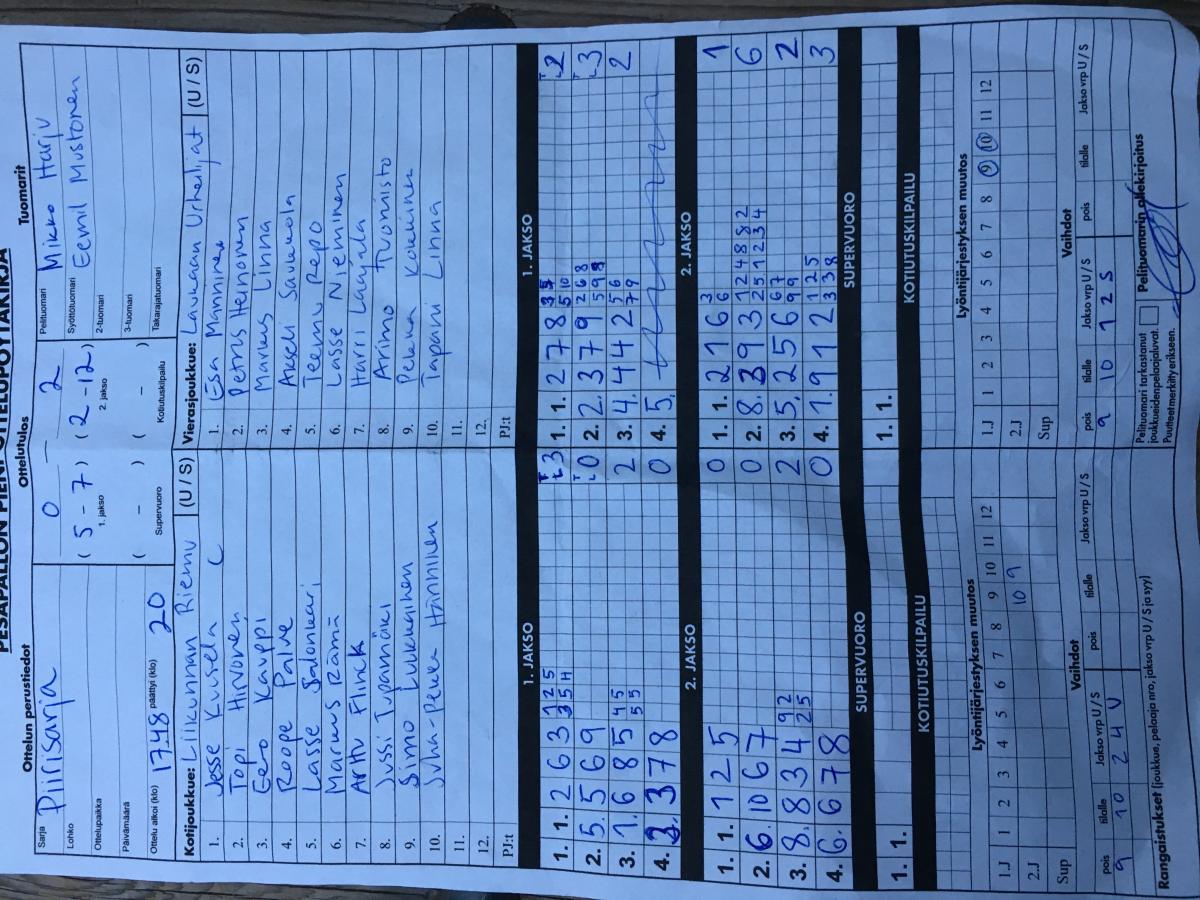 PESÄPALLON PIENI OTTELUPÖYTÄKIRJA
Ottelun perustiedot
Ottelutulos
Tuomarit
Sarja Piirisarja
Lohko
Ottelupaikka
Päivämäärä
Ottelu alkoi (klo) 17.48 päättyi (klo) 20
0 – 2
( 5 - 7 ) ( 2 - 12 )
1. jakso 2. jakso
( – ) ( – )
Supervuoro Kotiutuskilpailu
Pelituomari Mikko Harju
Syöttötuomari Eemil Mustonen
2-tuomari
3-tuomari
Takarajatuomari
Kotijoukkue: Liikunnan Riemu (U / S)
1. Jesse Kusela C
2. Topi Hirvonen
3. Eero Kauppi
4. Roope Palve
5. Lasse Salonkari
6. Markus Rämä
7. Arttu Flink
8. Jussi Tupamäki
9. Simo Luukkainen
10. Juha-Pekka Hänninen
11.
12.
PJ:t
Vierasjoukkue: Laukaan Urheilijat (U / S)
1. Esa Manninen
2. Petrus Heinonen
3. Markus Linna
4. Akseli Savukola
5. Teemu Repo
6. Lasse Nieminen
7. Harri Laajala
8. Arimo Tuomisto
9. Pekka Kokkinen
10. Tapani Linna
11.
12.
PJ:t
1. JAKSO
1. 1. 2 6 3
2. 5. 5 6 9
3. 1. 6 8 5
4. 3 7 8
3
0
2
0
1. JAKSO
1. 1. 2 7 8
2. 2. 3 7 9
3. 4. 4 4 2
4. 5.
2
3
2
2. JAKSO
1. 1. 1 2 5 0
2. 6. 10 6 7 0
3. 8. 8 3 4 2
4. 6. 6 7 8 0
2. JAKSO
1. 1. 2 1 6 1
2. 8. 3 9 3 6
3. 5. 2 5 6 2
4. 1. 9 1 2 3
SUPERVUORO
1. 1.
SUPERVUORO
1. 1.
KOTIUTUSKILPAILU
KOTIUTUSKILPAILU
Lyöntijärjestyksen muutos
1.J 1 2 3 4 5 6 7 8 9 10 11 12
2.J 10 9
Sup
Lyöntijärjestyksen muutos
1.J 1 2 3 4 5 6 7 8 9 10 11 12
2.J
Sup
Vaihdot
pois tilalle Jakso vrp U / S pois tilalle Jakso vrp U / S
9 10 2 4 U
Vaihdot
pois tilalle Jakso vrp U / S pois tilalle Jakso vrp U / S
9 10 1 2 S
Rangaistukset (joukkue, pelaaja nro, jakso vrp U / S ja syy)
Pelituomari tarkastanut
joukkueidenpelaajaluvat.
Puutteet merkitty erikseen.
Pelituomarin allekirjoitus